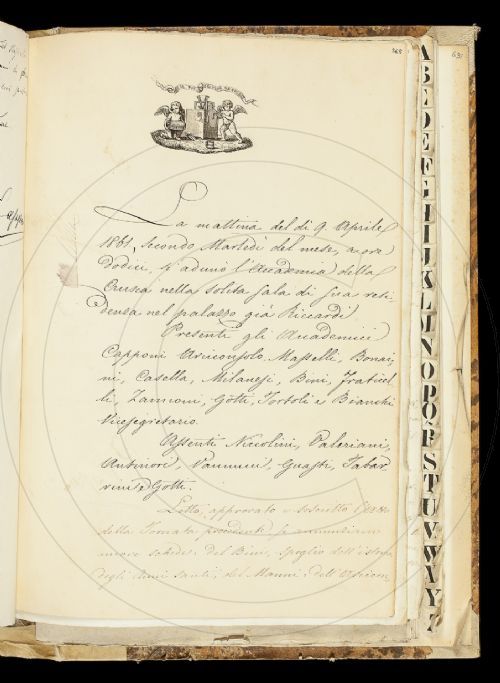 365
631
La mattina del dì 9 Aprile
1861, Secondo Martedì del mese, a ore
dodici, s'adunò l'Accademia della
Crusca nella solita sala di sua resi
denza nel palazzo già Riccardi
Presenti gli Accademici
Capponi Arciconsolo, Masselli, Bonai,
ni, Casella, Milanesi, Bini, Fraticel
li, Zannoni, Gotti, Tortoli e Bianchi
Vicesegretario.
Assenti Niccolini, Paleriani,
Antinori, Vannucci, Guasti, Tabar
rini e Gotti.
Letto, approvato e soscritto
della Tornata precedente si annunziano
nuove schede, del Bini, spoglio dell'
degli Anni Santi; del Manni; dell'
A
B
C
D
E
F
G
H
I
J
K
L
M
N
O
P
Q
R
S
T
U
V
W
X
Y
Z